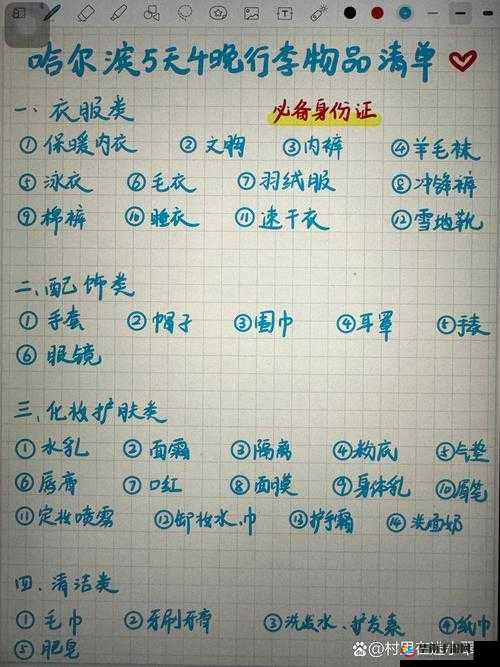 哈尔滨5天4晚行李物品清单
一、衣服类 必备身份证
①保暖内衣 ②文胸 ③内裤 ④羊毛袜
⑤泳衣 ⑥毛衣 ⑦羽绒服 ⑧冲锋裤
⑨棉裤 ⑩睡衣 ⑪速干衣 ⑫雪地靴
二、配饰类
①手套 ②帽子 ③围巾 ④耳罩 ⑤手表
⑥眼镜
三、化妆护肤类
①水乳 ②面霜 ③隔离 ④粉底 ⑤气垫
⑥唇膏 ⑦口红 ⑧面膜 ⑨身体乳 ⑩眉笔
⑪定妆喷雾 ⑫卸妆水、巾 ⑬护手霜 ⑭洗面奶
四、清洁类
①毛巾 ②牙刷牙膏 ③洗发水、护发素 ④纸巾
⑤肥皂
@村里在逃小